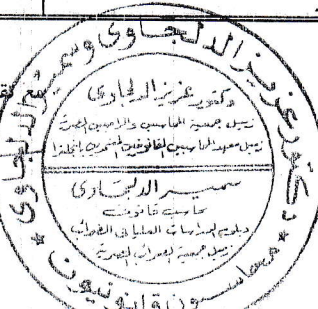 دكتور عزيز الدلجاوى وسمير الدلجاوى
محاسبون قانونيون
دكتور عزيز الدلجاوى
زميل جمعية المحاسبين والمراجعين المصرية
زميل معهد المحاسبين القانونيين المعتمدين بانجلترا
سمير الدلجاوى
محاسب قانونى
دبلوم الدراسات العليا فى الضرائب
زميل جمعية الضرائب المصرية